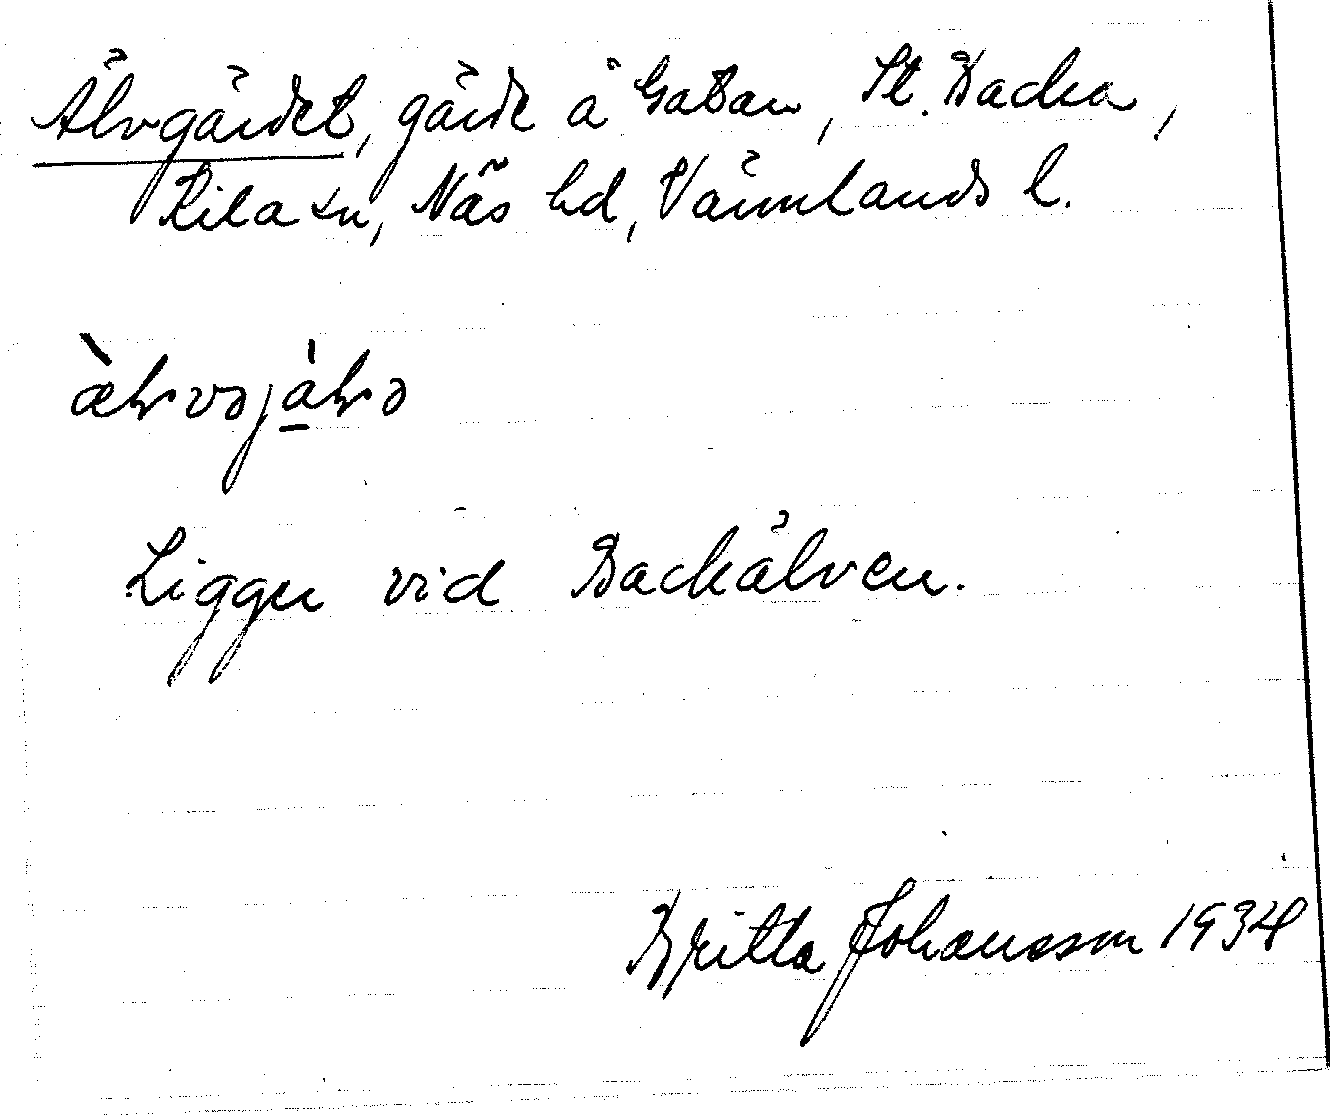 Älvgärdet, gärde å Gatan, St. Backa,
Kila sn, Näs hd, Värmlands l.
Ligger vid Backälven.
Britta Johansson 1934